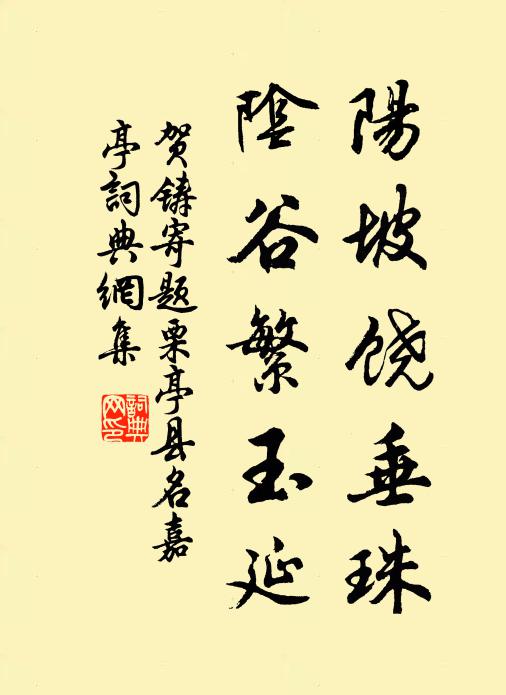 陽坡饶垂珠
陰谷繁玉延
贺鑄寄题栗亭县名嘉
亭詞典網集
詞典網印